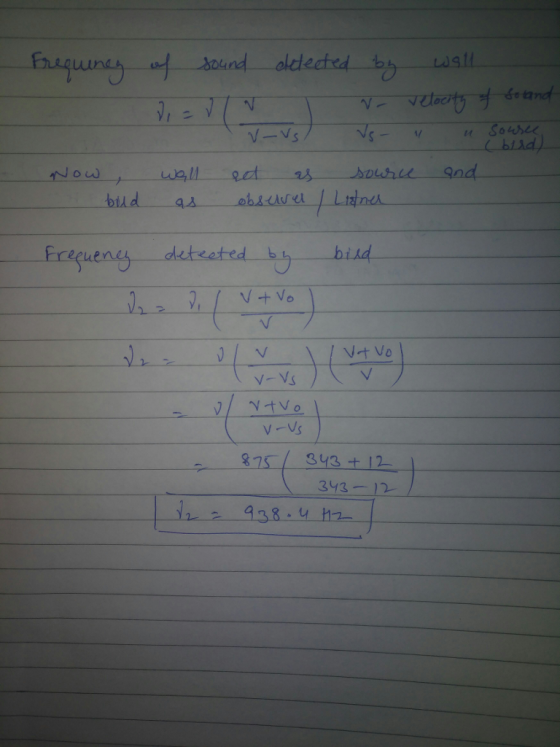 Frequency of sound detected by wall
ν₁ = ν ( V / V - Vs ) V - velocity of sound
Vs - " " source (bird)
Now, wall act as source and
bird as observer / Listner
Frequency detected by bird
ν₂ = ν₁ ( V + Vo / V )
ν₂ = ν ( V / V - Vs ) ( V + Vo / V )
= ν ( V + Vo / V - Vs )
= 875 ( 343 + 12 / 343 - 12 )
ν₂ = 938.4 Hz